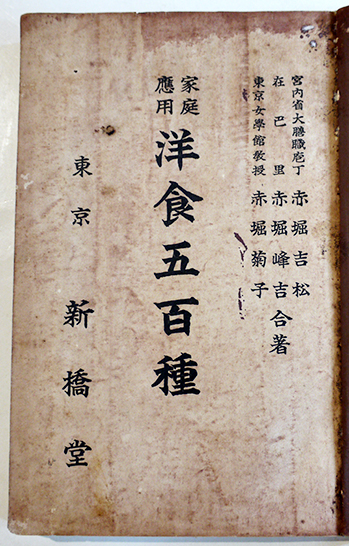 宮内省大膳職庖丁 赤堀吉松
在巴里 赤堀峰吉 合著
東京女學館教授 赤堀菊子
家庭
應用
洋食五百種
東京 新橋堂